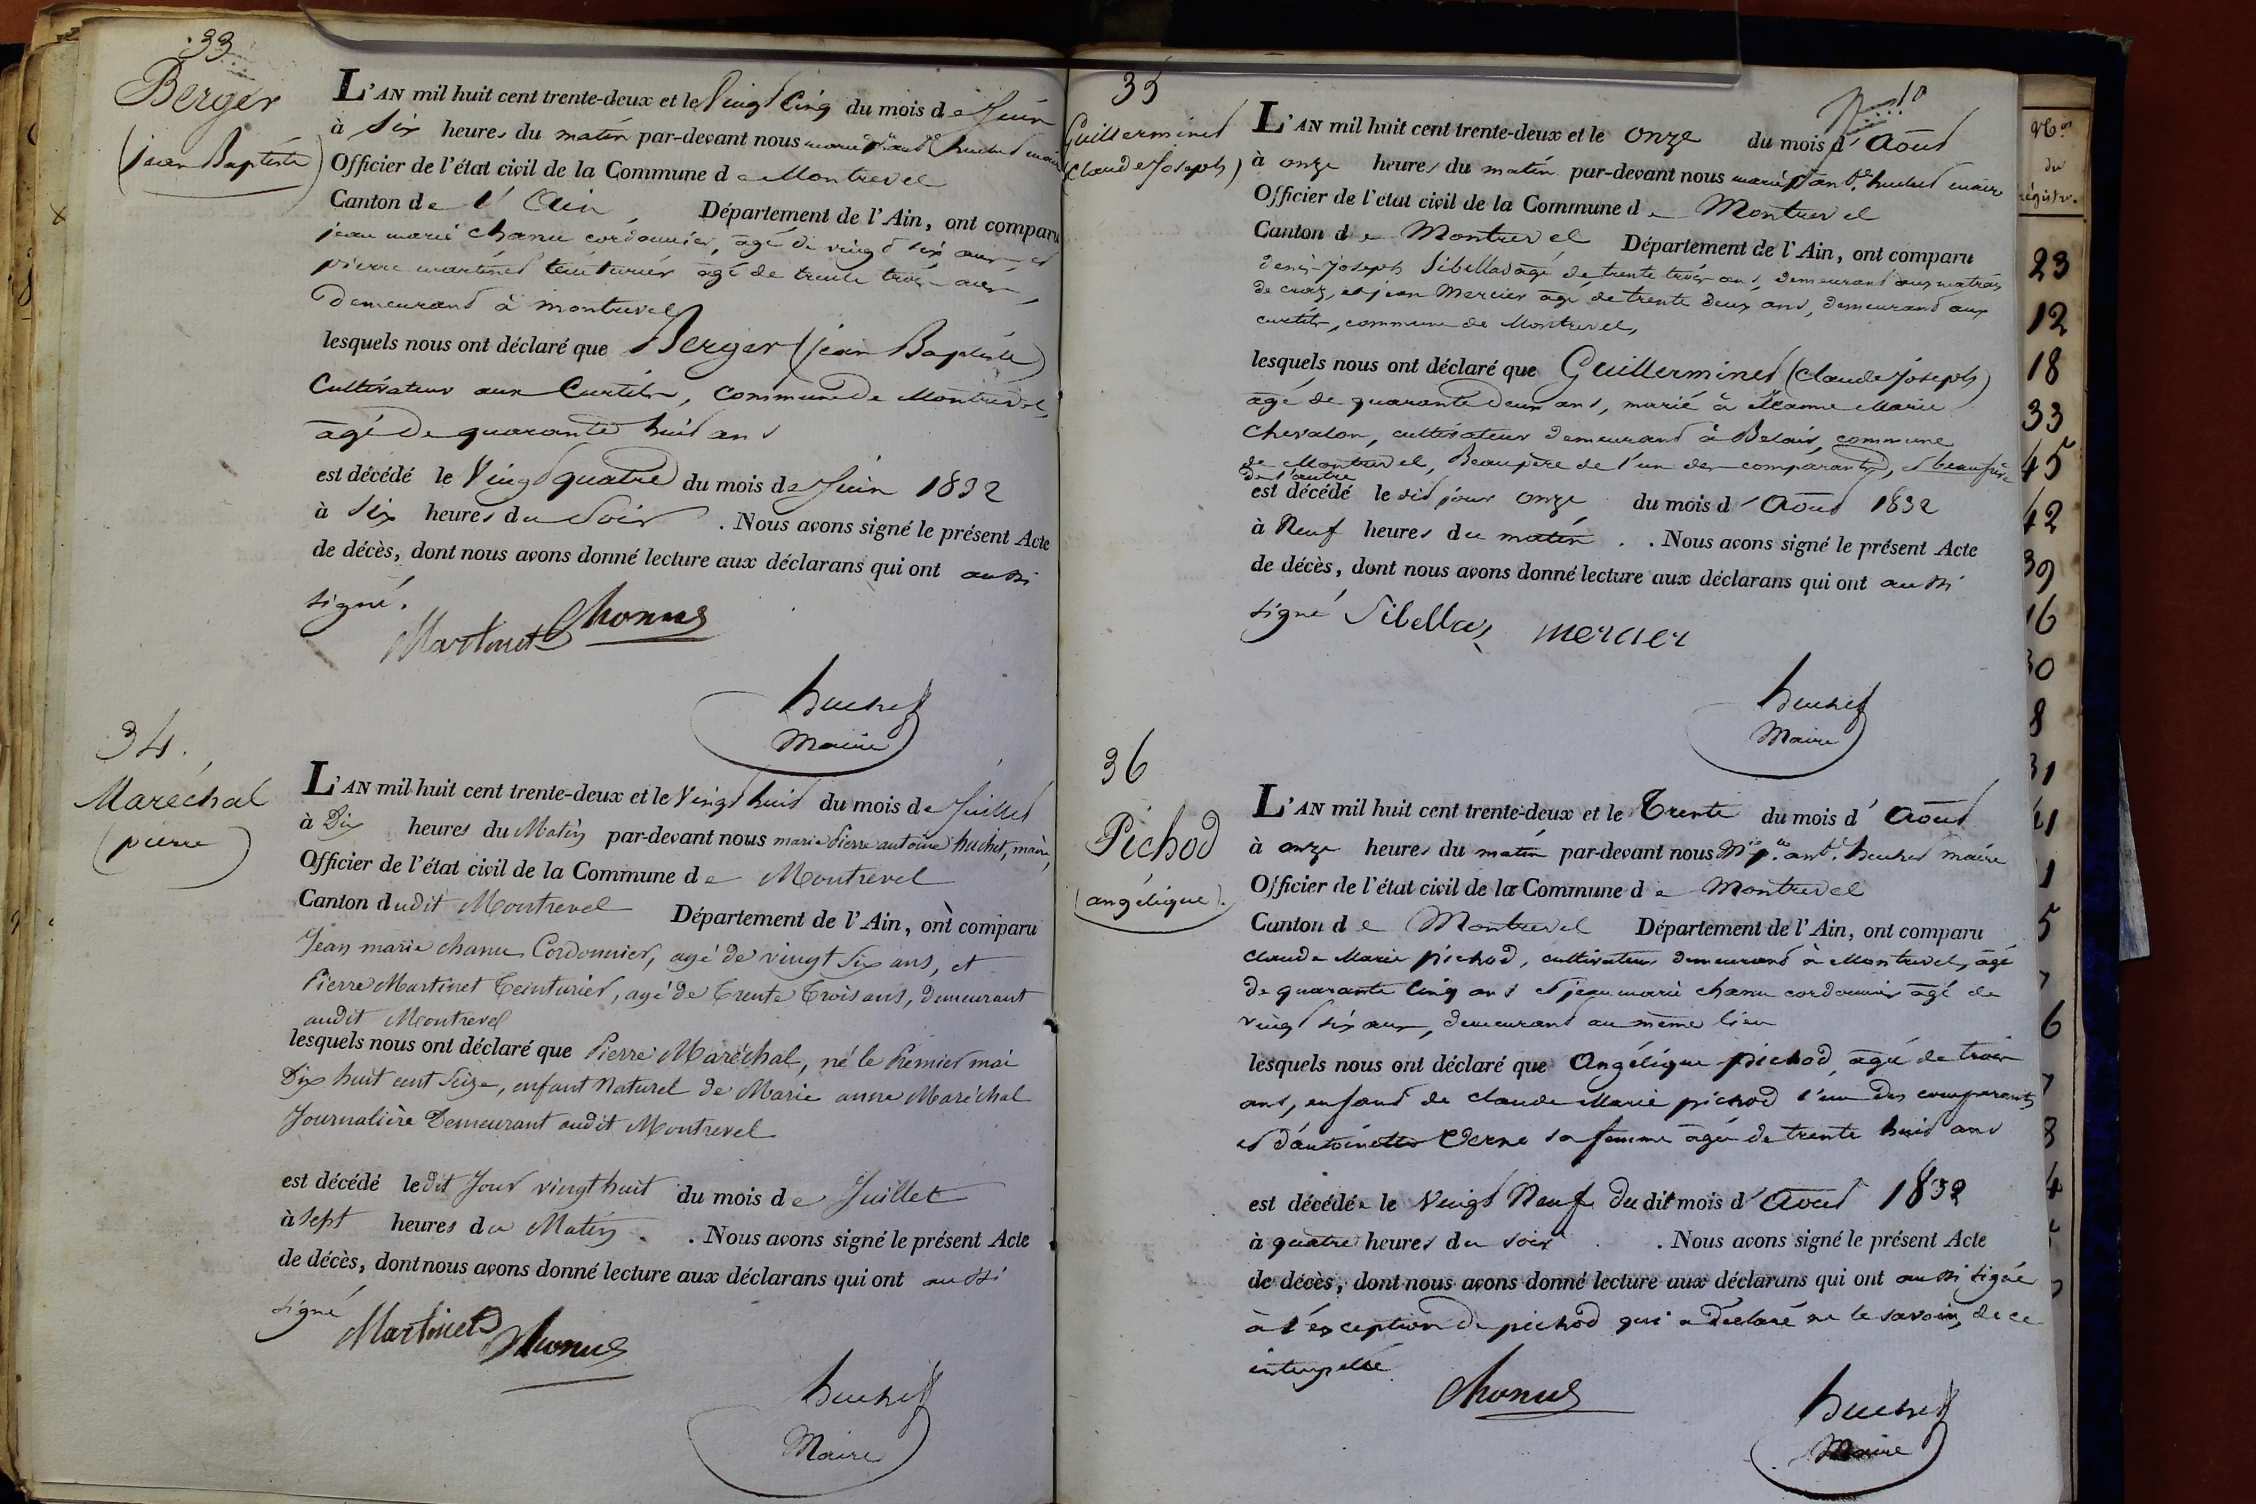 33
Berger
(jean Baptiste)
L'AN mil huit cent trente-deux et le Vingt Cinq du mois de Juin
à Six heures du matin par-devant nous marie pre antne huchet maire
Officier de l'état civil de la Commune de Montrevel
Canton de l'Ain Département de l'Ain, ont comparu
jean marie Chanu cordonnier, agé de vingt six ans, et
pierre martinet teinturier agé de trente trois ans,
Demeurant à montrevel
lesquels nous ont déclaré que Berger (jean Baptiste)
Cultivateur aux Curtils, Commune De Montrevel,
agé De quarante huit ans
est décédé le Vingt quatre du mois de Juin 1832
à Six heures du Soir . Nous avons signé le présent Acte
de décès, dont nous avons donné lecture aux déclarans qui ont aussi
signé.
Martinet Chanu
huchet
Maire
34.
Maréchal
(pierre)
L'AN mil huit cent trente-deux et le Vingt huit du mois de Juillet
à Dix heures du Matin par-devant nous marie Pierre antoine huchet, maire,
Officier de l'état civil de la Commune de Montrevel
Canton dudit Montrevel Département de l'Ain, ont comparu
Jean marie chanu Cordonnier, agé de vingt Six ans, et
Pierre Martinet Teinturier, agé de Trente Trois ans, demeurant
audit Montrevel
lesquels nous ont déclaré que Pierre Maréchal, né le Premier mai
Dix huit cent Seize, enfant Naturel de Marie anne Maréchal
Journalière Demeurant audit Montrevel
est décédé ledit Jour vingt huit du mois de Juillet
à sept heures du Matin . . Nous avons signé le présent Acte
de décès, dont nous avons donné lecture aux déclarans qui ont aussi
signé
Martinet Chanu
huchet
Maire
35
Guillerminet
(Claude Joseph)
L'AN mil huit cent trente-deux et le onze du mois d'Août
à onze heures du matin par-devant nous marie pre antne huchet maire
Officier de l'état civil de la Commune de Montrevel
Canton de Montrevel Département de l'Ain, ont comparu
denis-Joseph Sibellas agé de trente trois ans, demeurant aux matras
de cruiz, et jean Mercier agé de trente deux ans, demeurant aux
curtils, commune de Montrevel,
lesquels nous ont déclaré que Guillerminet (Claude Joseph)
agé de quarante deux ans, marié à Jeanne Marie
Chevalon, cultivateur demeurant à Belair, commune
de Montrevel, Beaupère de l'un des comparants, et beaufrère
de l'autre
est décédé le dit jour onze du mois d'Août 1832
à Neuf heures du matin . . Nous avons signé le présent Acte
de décès, dont nous avons donné lecture aux déclarans qui ont aussi
signé Sibellas mercier
huchet
Maire
36
Pichod
(angélique).
L'AN mil huit cent trente-deux et le Trente du mois d'Août
à onze heures du matin par-devant nous Mie pre ant. huchet maire
Officier de l'état civil de la Commune de Montrevel
Canton de Montrevel Département de l'Ain, ont comparu
Claude Marie pichod, cultivateur demeurant à Montrevel, agé
de quarante Cinq ans et jean marie chanu cordonnier agé de
vingt six ans, demeurant au même lieu
lesquels nous ont déclaré que Angélique pichod, agée de trois
ans, enfant de Claude Marie pichod l'un Des comparants
et d'antoinette Verne sa femme agée de trente huit ans
est décédée le Vingt Neuf Du dit mois d'Août 1832
à quatre heures du soir . . Nous avons signé le présent Acte
de décès, dont nous avons donné lecture aux déclarans qui ont aussi signé
à l'exception de pichod qui a déclaré ne le savoir, de ce
interpellé
Chanu
huchet
Maire
Nos
du
régistre.
23
12
18
33
45
42
39
16
30
8
31
41
1
5
7
6
7
8
4